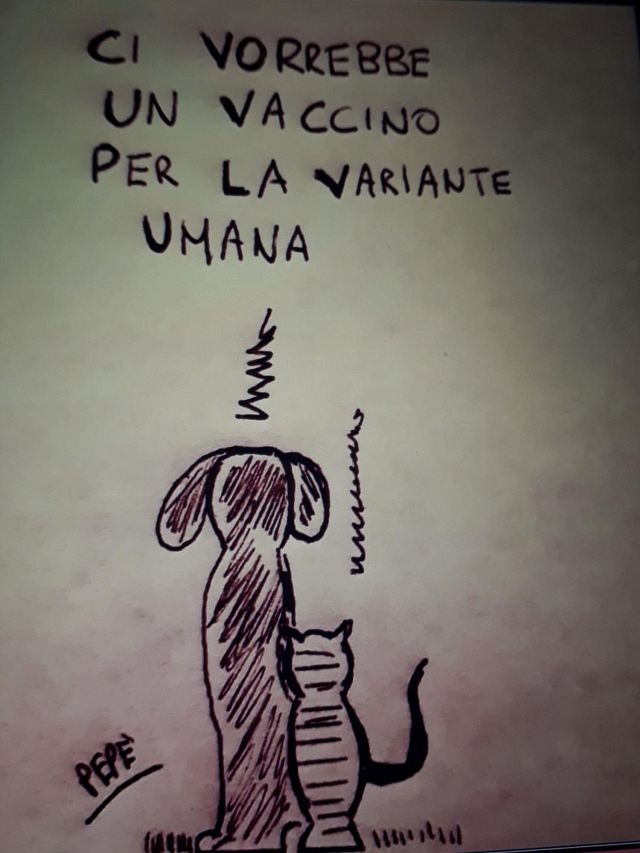 CI VORREBBE
UN VACCINO
PER LA VARIANTE
UMANA
PEPÈ